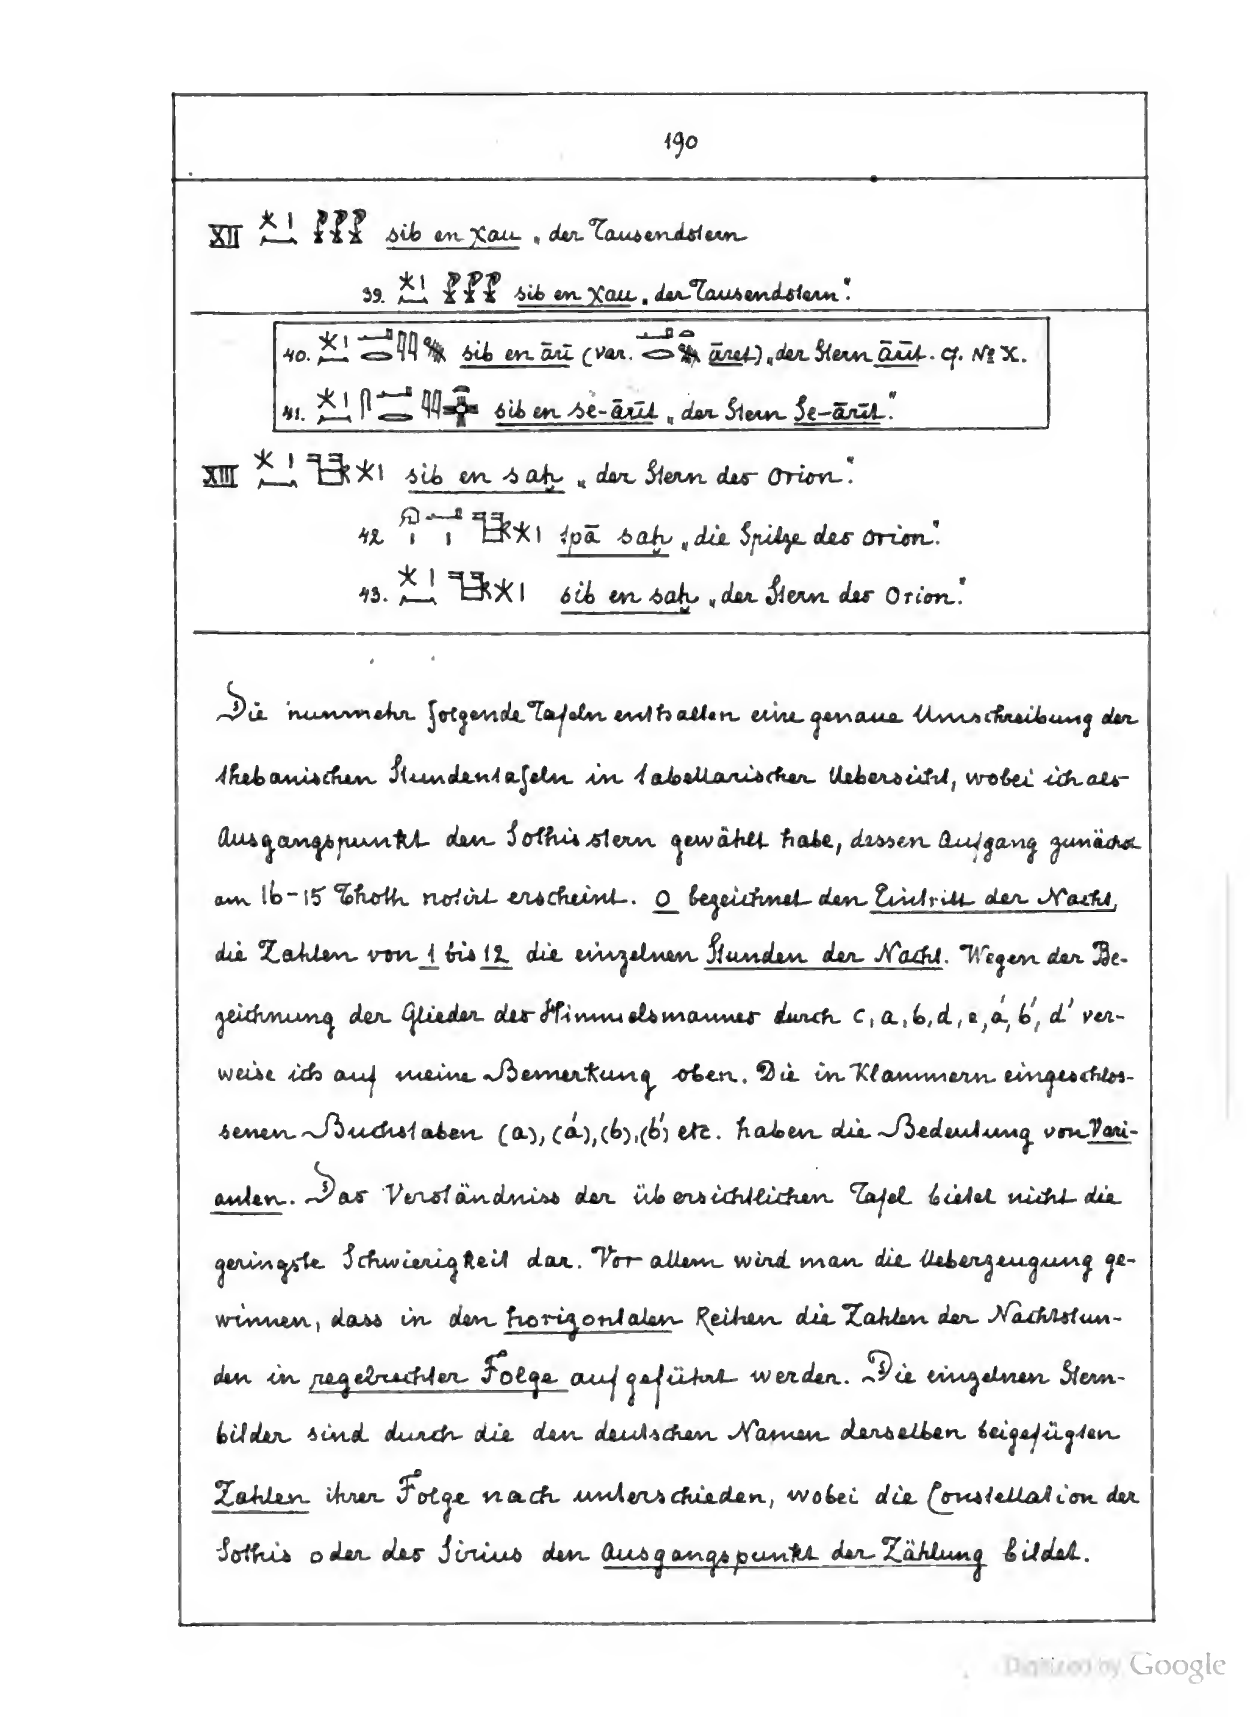 190
XII sib en χau „der Tausendstern
39. sib en χau „der Tausendstern".
40. sib en ārī (var. āret) „der Stern ārīt. cf. № X.
41. sib en se-ārīt „der Stern Se-ārīt".
XIII sib en saḥ „der Stern des Orion".
42 tpā saḥ „die Spitze des Orion".
43. sib en saḥ „der Stern des Orion".
Die nunmehr folgende Tafeln enthalten eine genaue Umschreibung der
thebanischen Stundentafeln in tabellarischer Uebersicht, wobei ich als
Ausgangspunkt den Sothisstern gewählt habe, dessen Aufgang zunächst
am 16-15 Thoth notirt erscheint. 0 bezeichnet den Eintritt der Nacht,
die Zahlen von 1 bis 12 die einzelnen Stunden der Nacht. Wegen der Be-
zeichnung der Glieder des Himmelsmannes durch c, a, b, d, e, á, b́, d' ver-
weise ich auf meine Bemerkung oben. Die in Klammern eingeschlos-
senen Buchstaben (a), (á), (b), (b́) etc. haben die Bedeutung von Vari-
anten. Das Verständniss der übersichtlichen Tafel bietet nicht die
geringste Schwierigkeit dar. Vor allem wird man die Ueberzeugung ge-
winnen, dass in den horizontalen Reihen die Zahlen der Nachtstun-
den in regelrechter Folge aufgeführt werden. Die einzelnen Stern-
bilder sind durch die den deutschen Namen derselben beigefügten
Zahlen ihrer Folge nach unterschieden, wobei die Constellation der
Sothis oder des Sirius den Ausgangspunkt der Zählung bildet.
Digitized by Google